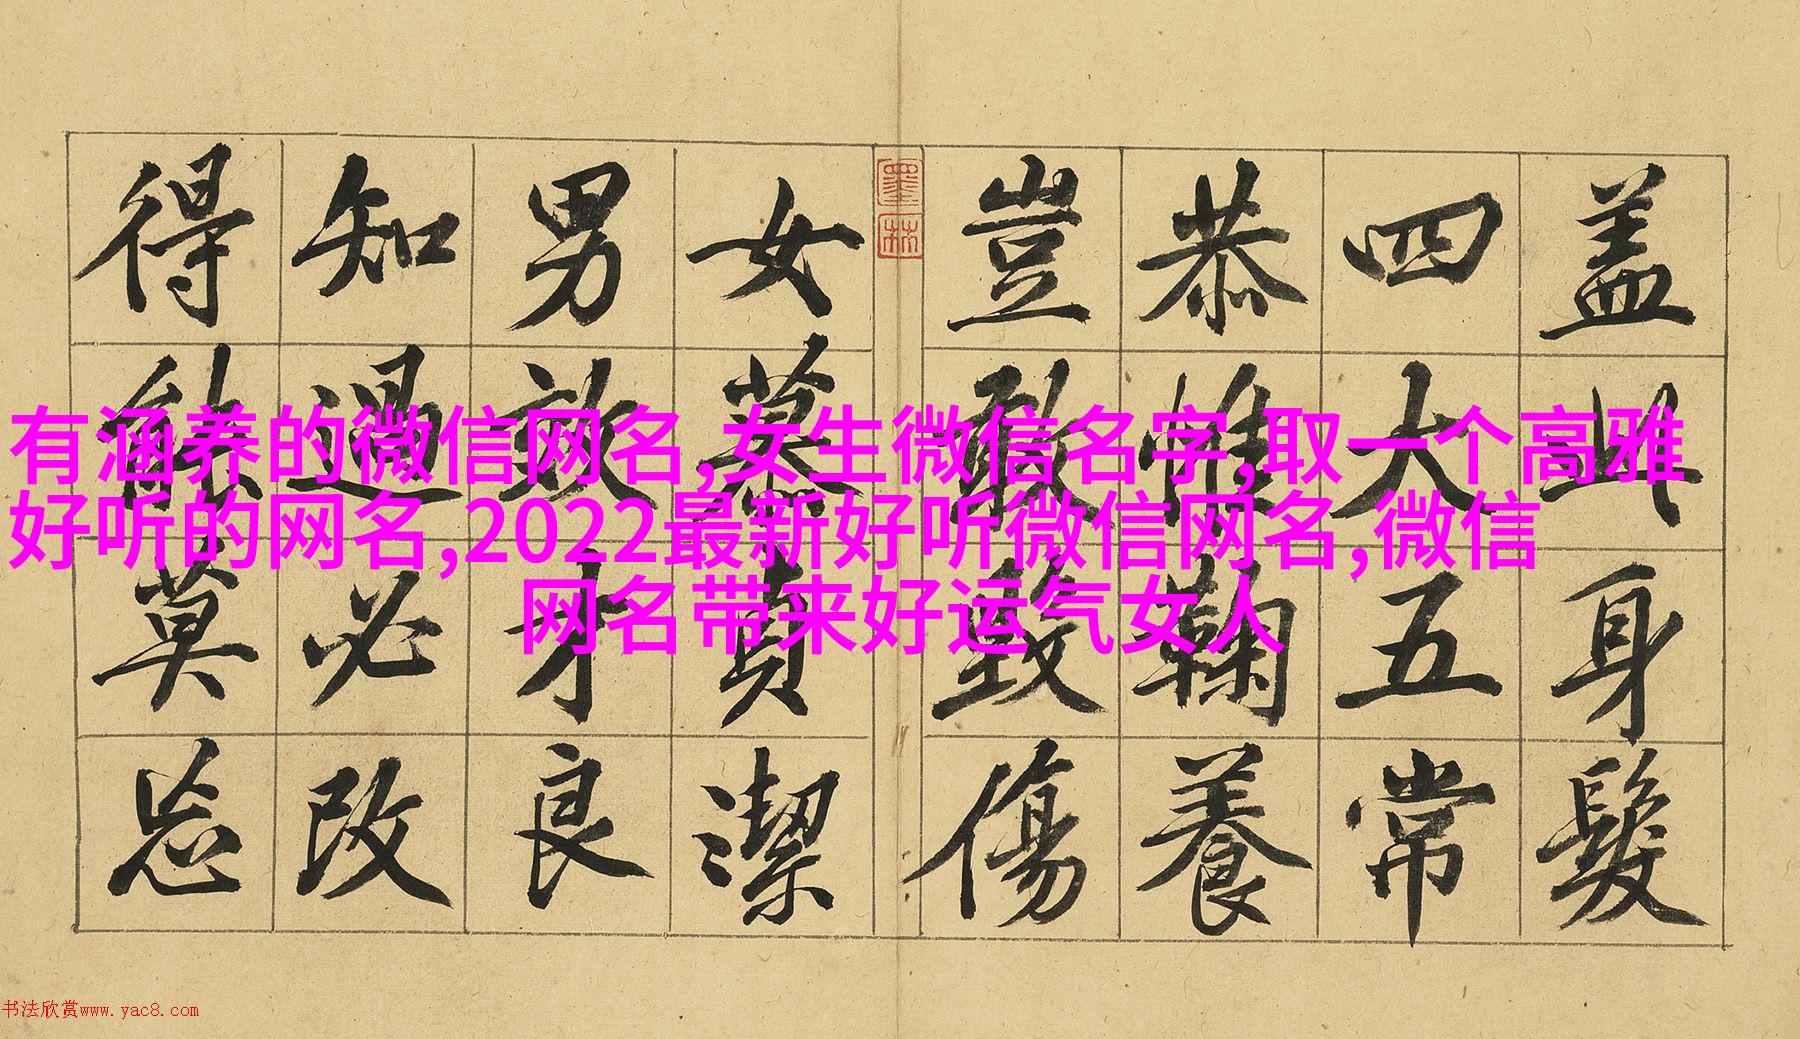 盖此身髮
四大五常
恭惟鞠養
豈敢毀傷
女慕貞潔
男效才良
知過必改
得能莫忘
墨林
有涵养的微信网名,女生微信名字,取一个高雅
好听的网名,2022最新好听微信网名,微信
网名带来好运气女人
书法欣赏www.yac8.com